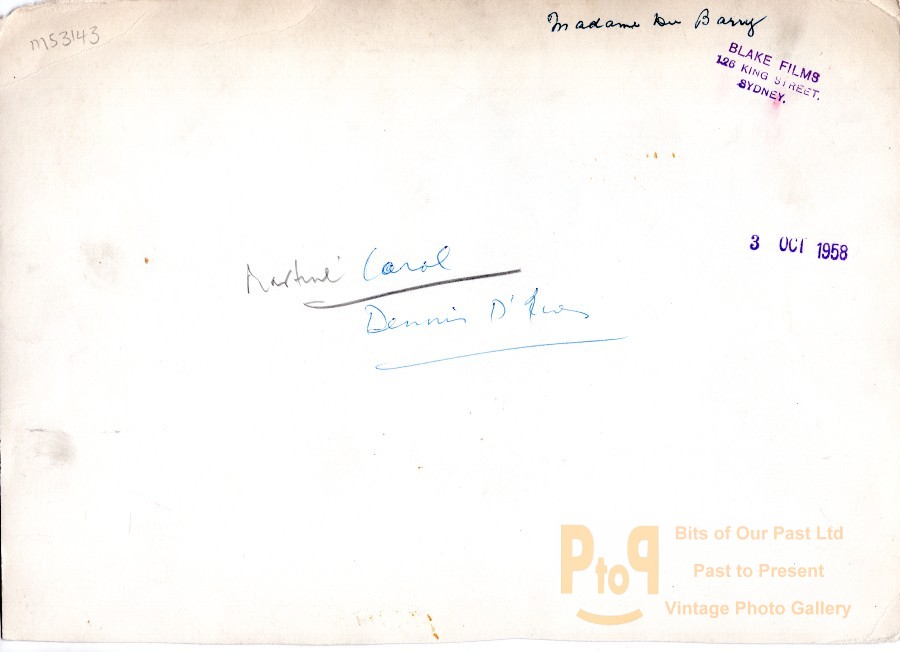 m53143
Madame Du Barry
BLAKE FILMS
126 KING STREET,
SYDNEY.
3 OCT 1958
Martine Carol
Dennis D'
PtoP
Bits of Our Past Ltd
Past to Present
Vintage Photo Gallery